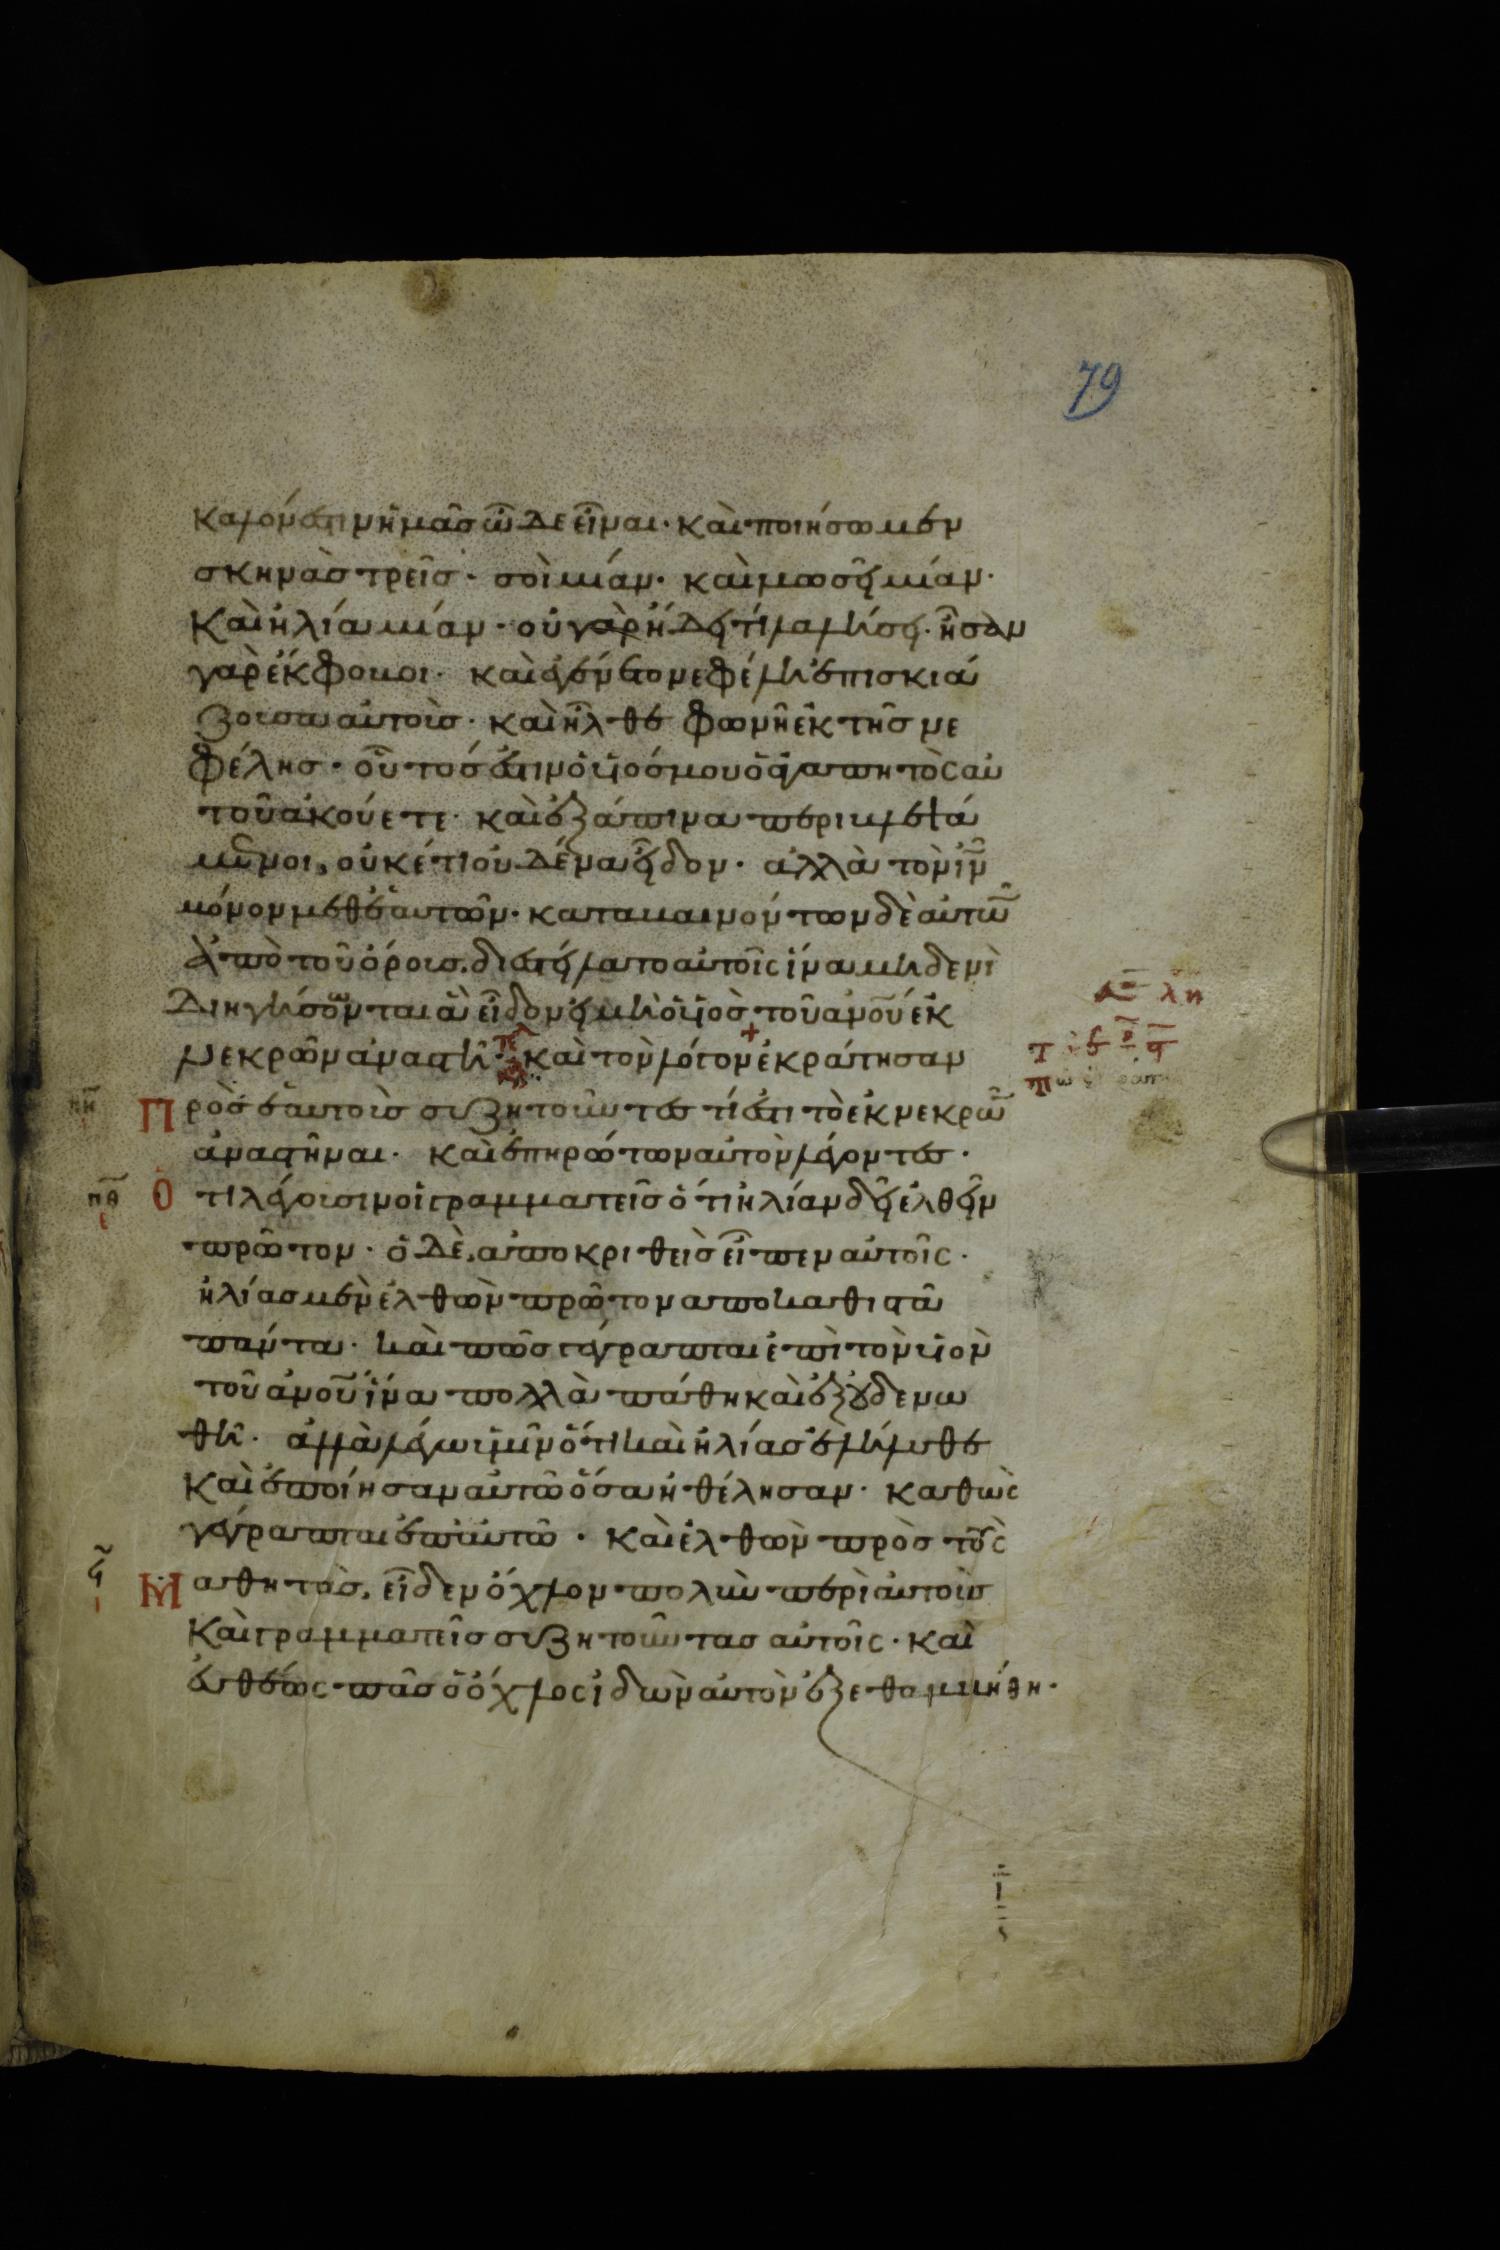 79
καλόν ἐστιν ἡμᾶσ ὧδε εἶναι· καὶ ποιήσωμεν
σκηνὰσ τρεῖσ· σοὶ μίαν· καὶ μωσῆ μίαν·
καὶ ἠλία μίαν· οὐ γὰρ ἤδει τί λαλήσει· ἦσαν
γὰρ ἔκφοβοι· καὶ ἐγένετο νεφέλη ἐπισκιά
ζουσα αὐτοῖσ· καὶ ἦλθε φωνὴ ἐκ τῆσ νε
φέλησ· οὗτόσ ἐστιν ὁ υἱόσ μου ὁ ἀγαπητὸς αὐ
τοῦ ἀκούετε· καὶ ἐξάπινα περιβλεψά
μενοι, οὐκέτι οὐδένα εἶδον· ἀλλὰ τὸν ἰν̅
μόνον μεθ' ἑαυτῶν· καταβαινόντων δὲ αὐτῶν
ἀπὸ τοῦ ὄρουσ, διεστείλατο αὐτοῖς ἵνα μηδενὶ
διηγήσωνται ἃ εἶδον εἰ μὴ ὁ υἱὸσ τοῦ ἀνου̅ ἐκ
νεκρῶν ἀναστῆ· καὶ τὸν λόγον ἐκράτησαν
πρὸσ ἑαυτοὺσ συζητοῦντεσ τί ἐστι τὸ ἐκ νεκρῶν
ἀναστῆναι· καὶ ἐπηρώτων αὐτὸν λέγοντεσ·
ὅτι λέγουσιν οἱ γραμματεῖσ ὅτι ἠλίαν δεῖ ἐλθεῖν
πρῶτον· ὁ δὲ, ἀποκριθεὶσ εἶπεν αὐτοῖς·
ἠλίασ μὲν ἐλθὼν πρῶτον ἀποκαθιστᾶ
πάντα· καὶ πῶσ γέγραπται ἐπὶ τὸν υἱὸν
τοῦ ἀνου̅ ἵνα πολλὰ πάθη καὶ ἐξουδενω
θῆ· ἀλλὰ λέγω ὑμῖν ὅτι καὶ ἠλίασ ἐλήλυθε
καὶ ἐποίησαν αὐτῶ ὅσα ἠθέλησαν· καθὼς
γέγραπται ἐπ' αὐτῶ· καὶ ἐλθὼν πρὸσ τοὺς
μαθητὰσ, εἶδεν ὄχλον πολὺν περὶ αὐτοὺσ
καὶ γραμματεῖσ συζητοῦντασ αὐτοῖς· καὶ
εὐθέως πᾶσ ὁ ὄχλος ἰδὼν αὐτὸν ἐξεθαμβήθη·